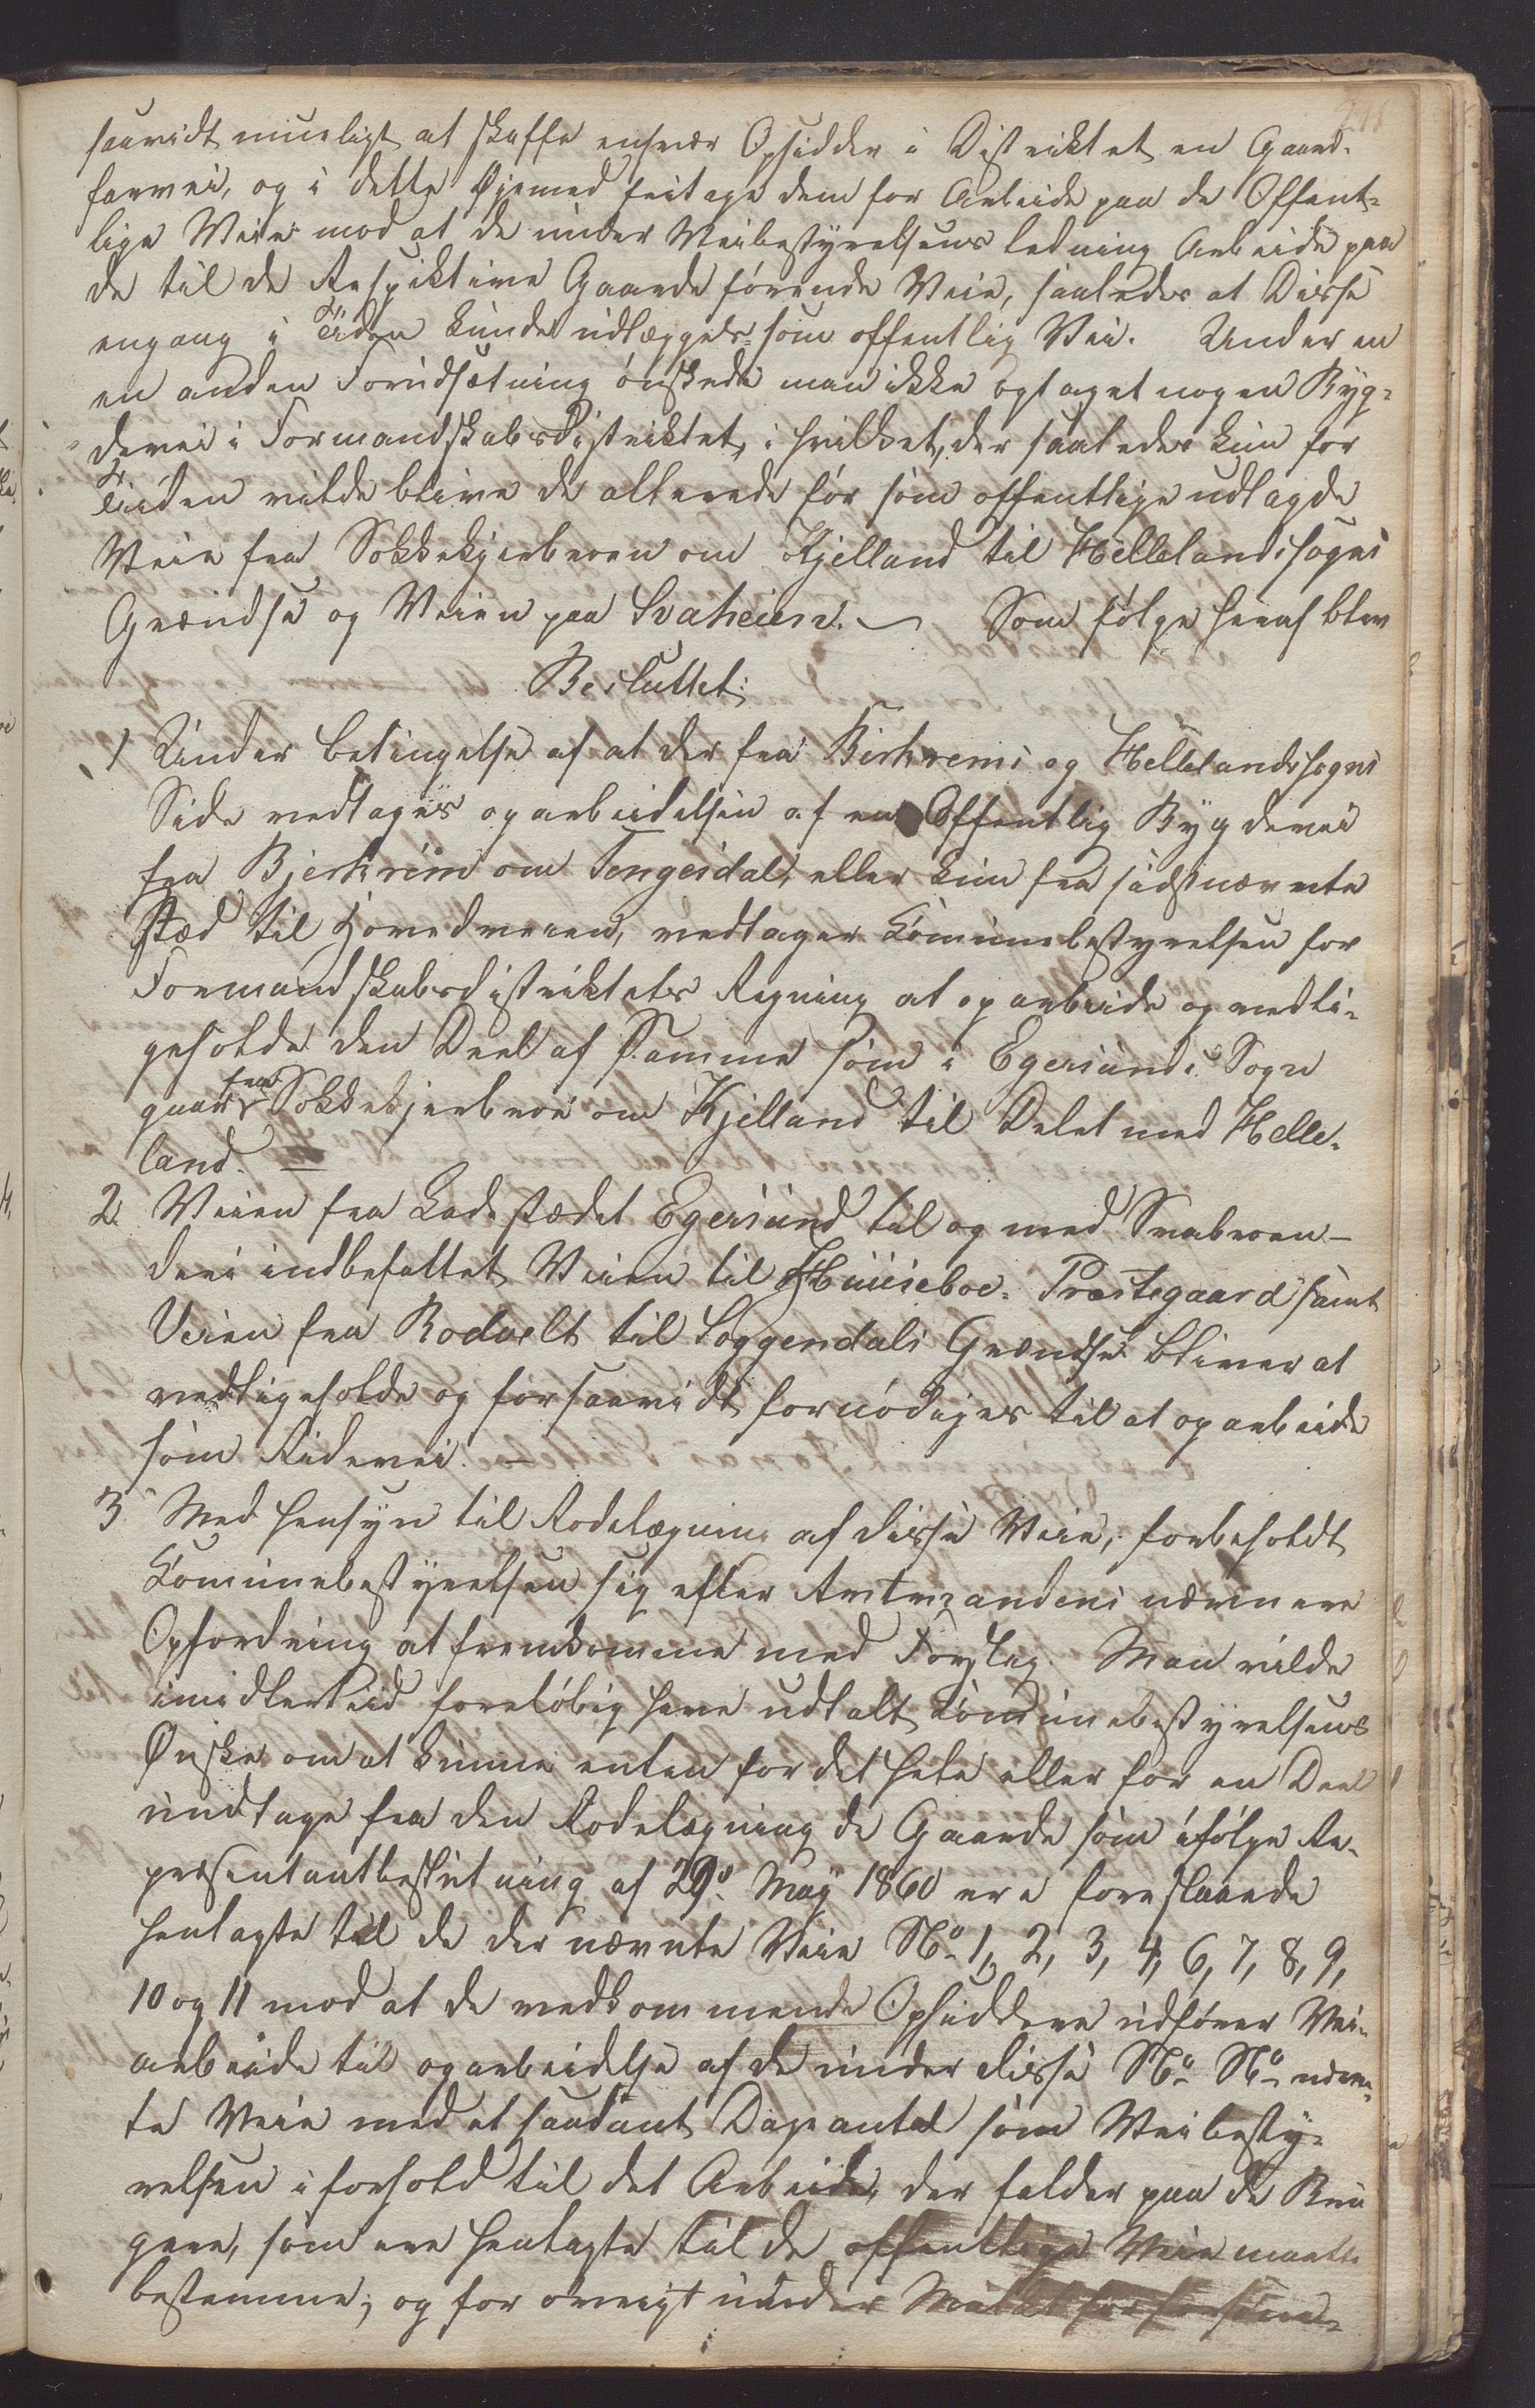 saavidt mueligt at skaffe enhver Opsidder i Distriktet en Gaard-
farvei, og i dette Øjemed fritage dem for Arbeide paa de Offent-
lige Veie mod at de under Veibestyrelsens ledning Arbeide paa
de til de Respektive Gaarde førende Veie, saaledes at Disse
engang i Tiden kunde udlægges som offentlig Vei. Under en
en anden Forudsætning ønskede man ikke optaget nogen Byg-
devei i Formandskabsdistriktet, i hvilket, der saaledes kun for
Tiiden vilde blive de allerede før som offentlige udlagde
Veie fra Sokkekjerbroen om Kjelland til Hellelandssogns
Grændse og Veien paa Svaheien. — Som følge heraf blev
Besluttet:
1 Under betingelse af at der fra Birkrems og Hellelandssogns
Side vedtages oparbeidelsen af en Offentlig Bygdevei
fra Bjerkrim om Tengesdal, eller kun fra sidstnævnte
Stæd til Hovedveien, vedtager Comunebestyrelsen for
Formandskabsdistriktets Regning at oparbeide og vedli-
geholde den Deel af Samme som i Egersunds Sogn
gaar fra Sokkekjerbroe om Kjelland til Delet med Helle-
land. —
2. Veien fra Ladestædet Egersund til og med Svabroen —
deri indbefattet Veien til Huuseboe Præstegaard samt
Veien fra Rodvelt til Soggendals Grændse bliver at
vedligeholde og forsaavidt fornødiges til at oparbeide
som Ridevei. —
3 Med Hensyn til Rodelægning af disse Veie, forbeholdt
Comunebestyrelsen sig efter Amtmandens nærmere
Opfordring at fremkomme med Forslag. Man vilde
imidlertiid foreløbig have udtalt Comunebestyrelsens
Ønske om at kunne enten for det Hele eller for en Deel
undtage fra den Rodelægning de Gaarde som ifølge Re-
præsentantbeslutning af 29d. May 1860 ere foreslaaede
henlagte til de der nævnte Veie No 1, 2, 3, 4, 6, 7, 8, 9,
10 og 11 mod at de vedkommende Opsiddere udfører Vei-
arbeide til oparbeidelse af de under disse No No nævn-
te Veie med et saadant Dageantal som Veibesty-
relsen i forhold til det Arbeide, der falder paa de Bru
gere, som ere henlagte til de offentlige Veie maatte
bestemme, og for øvrigt under Mulct for forsøm-